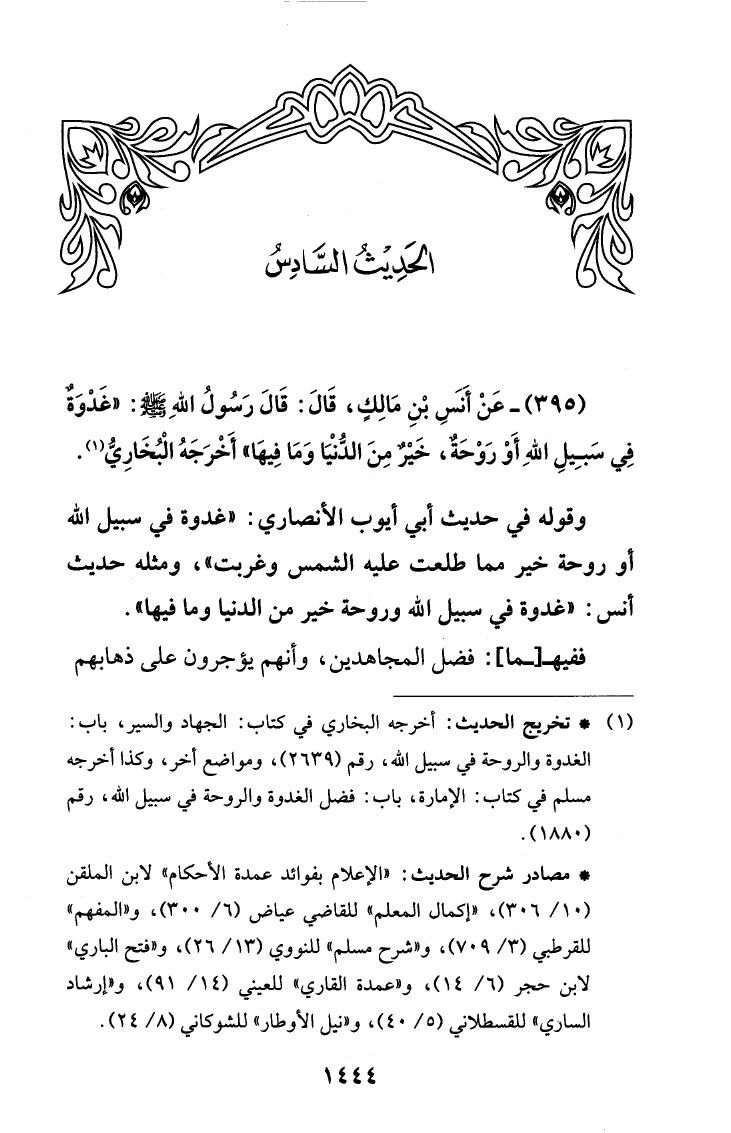 الحَدِيْثُ السَّادِسُ
(٣٩٥) ـ عَنْ أَنَسِ بْنِ مَالِكٍ، قَالَ: قَالَ رَسُولُ اللهِ ﷺ: «غَدْوَةٌ
فِي سَبِيلِ اللهِ أَوْ رَوْحَةٌ، خَيْرٌ مِنَ الدُّنْيَا وَمَا فِيهَا» أَخْرَجَهُ الْبُخَارِيُّ(١).
وقوله في حديث أبي أيوب الأنصاري: «غدوة في سبيل الله
أو روحة خير مما طلعت عليه الشمس وغربت»، ومثله حديث
أنس: «غدوة في سبيل الله وروحة خير من الدنيا وما فيها».
ففيهـ[ـما]: فضل المجاهدين، وأنهم يؤجرون على ذهابهم
(١) * تخريج الحديث: أخرجه البخاري في كتاب: الجهاد والسير، باب:
الغدوة والروحة في سبيل الله، رقم (٢٦٣٩)، ومواضع أخر، وكذا أخرجه
مسلم في كتاب: الإمارة، باب: فضل الغدوة والروحة في سبيل الله، رقم
(١٨٨٠).
* مصادر شرح الحديث: «الإعلام بفوائد عمدة الأحكام» لابن الملقن
(١٠/ ٣٠٦)، «إكمال المعلم» للقاضي عياض (٦/ ٣٠٠)، و«المفهم»
للقرطبي (٣/ ٧٠٩)، و«شرح مسلم» للنووي (١٣/ ٢٦)، و«فتح الباري»
لابن حجر (٦/ ١٤)، و«عمدة القاري» للعيني (١٤/ ٩١)، و«إرشاد
الساري» للقسطلاني (٥/ ٤٠)، و«نيل الأوطار» للشوكاني (٨/ ٢٤).
١٤٤٤